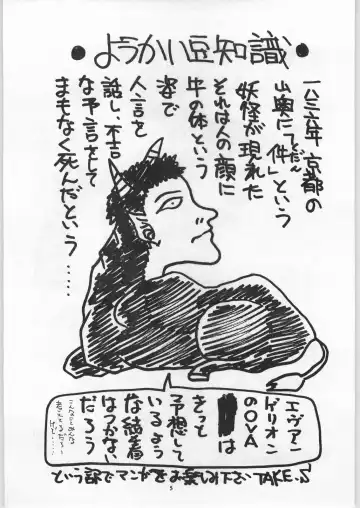 ようかい豆知識
一八三六年 京都の
山奥に「件」という
くだん
妖怪が現れた
それは人の顔に
牛の体という
姿で
人言を
話し、不吉
な予言をして
まもなく死んだという……
エヴァン
ゲリオン
のOVA
は
きって
予想して
いるよう
な結着
はつかない
だろう
という訳でマンガをお楽しみ下さい TAKE.S
5